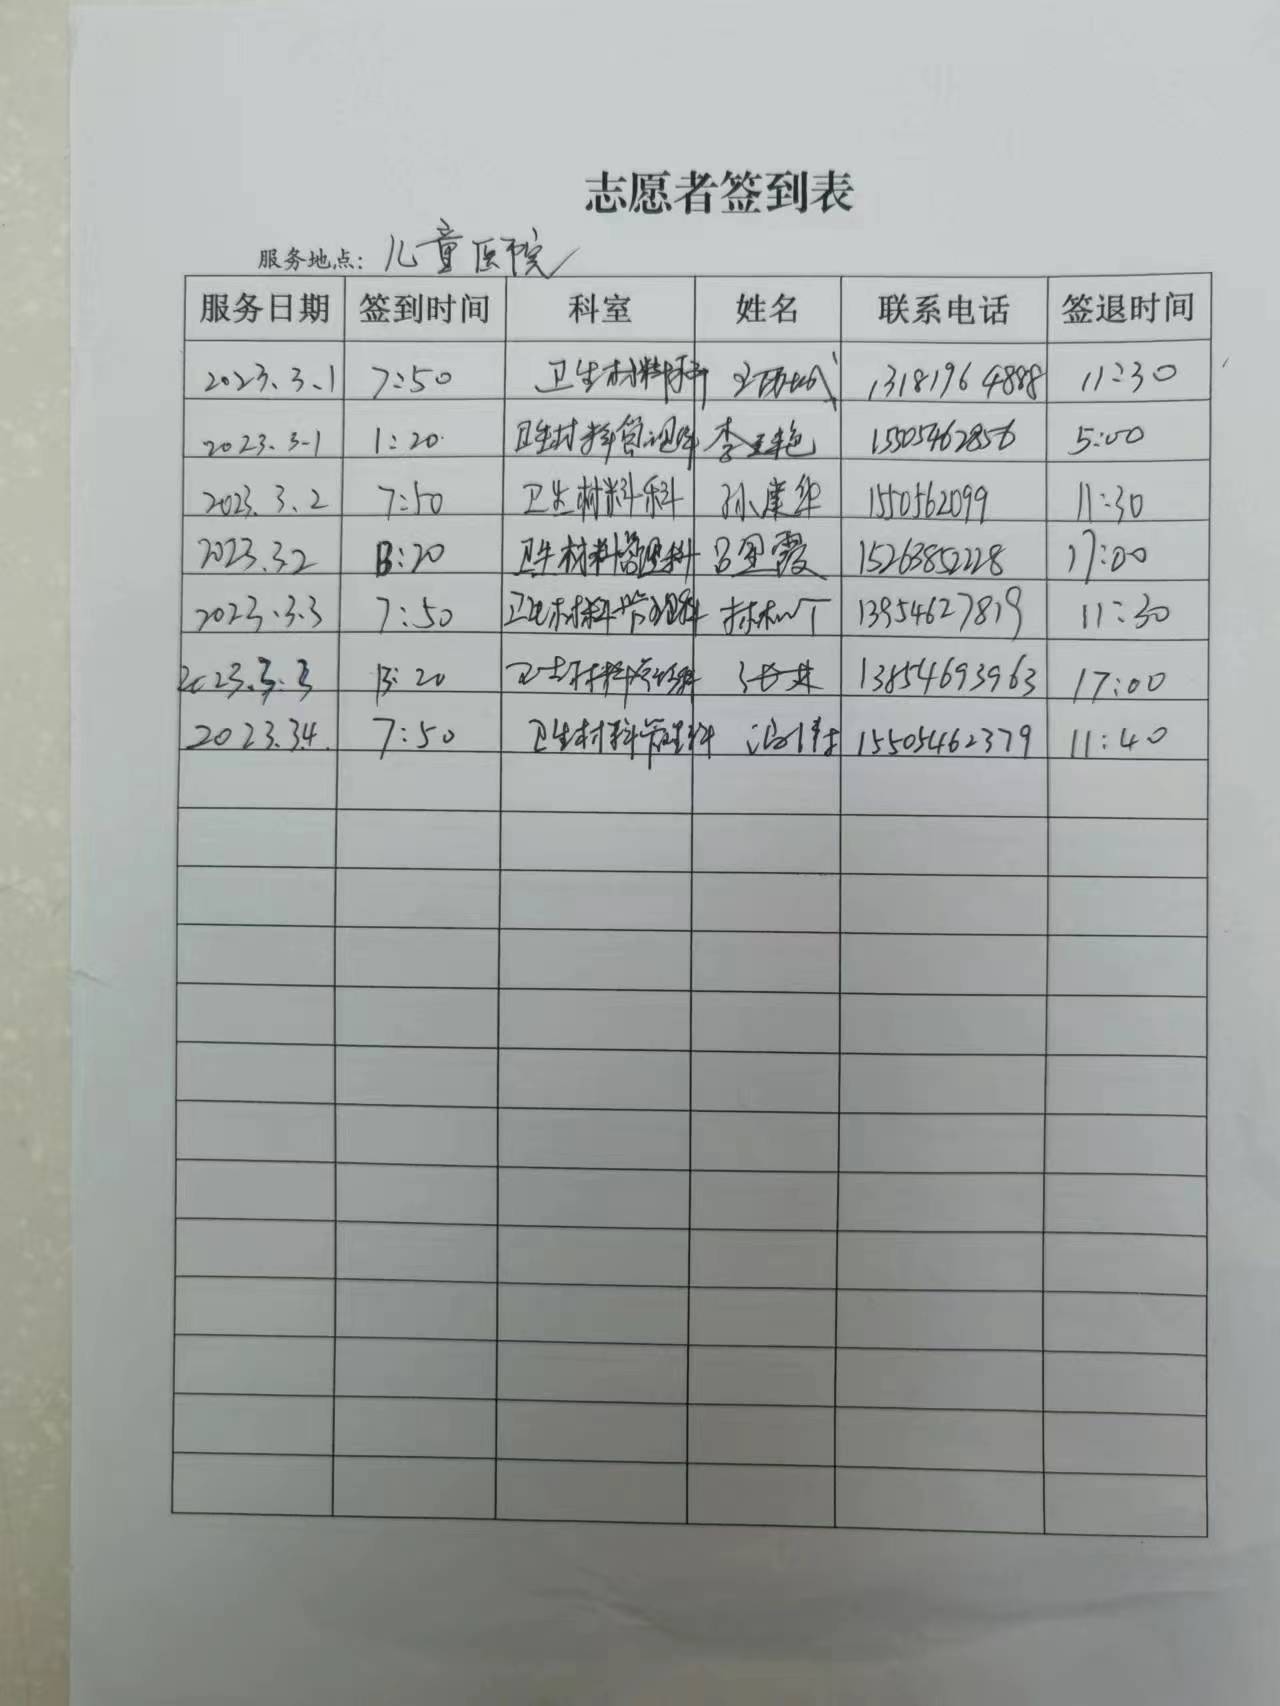 志愿者签到表
服务地点: 儿童医院
服务日期 签到时间 科室 姓名 联系电话 签退时间
2023.3.1 7:50 卫生材料科 13181964888 11:30
2023.3.1 1:20 卫生材料管理科 李玉艳 15505462856 5:00
2023.3.2 7:50 卫生材料科 孙康华 1550562099 11:30
2023.3.2 13:20 卫生材料管理科 吕曌霞 15263852228 17:00
2023.3.3 7:50 卫生材料管理科 13954627819 11:30
2023.3.3 13:20 卫生材料管理科 13854693963 17:00
2023.3.4. 7:50 卫生材料管理科 15505462379 11:40